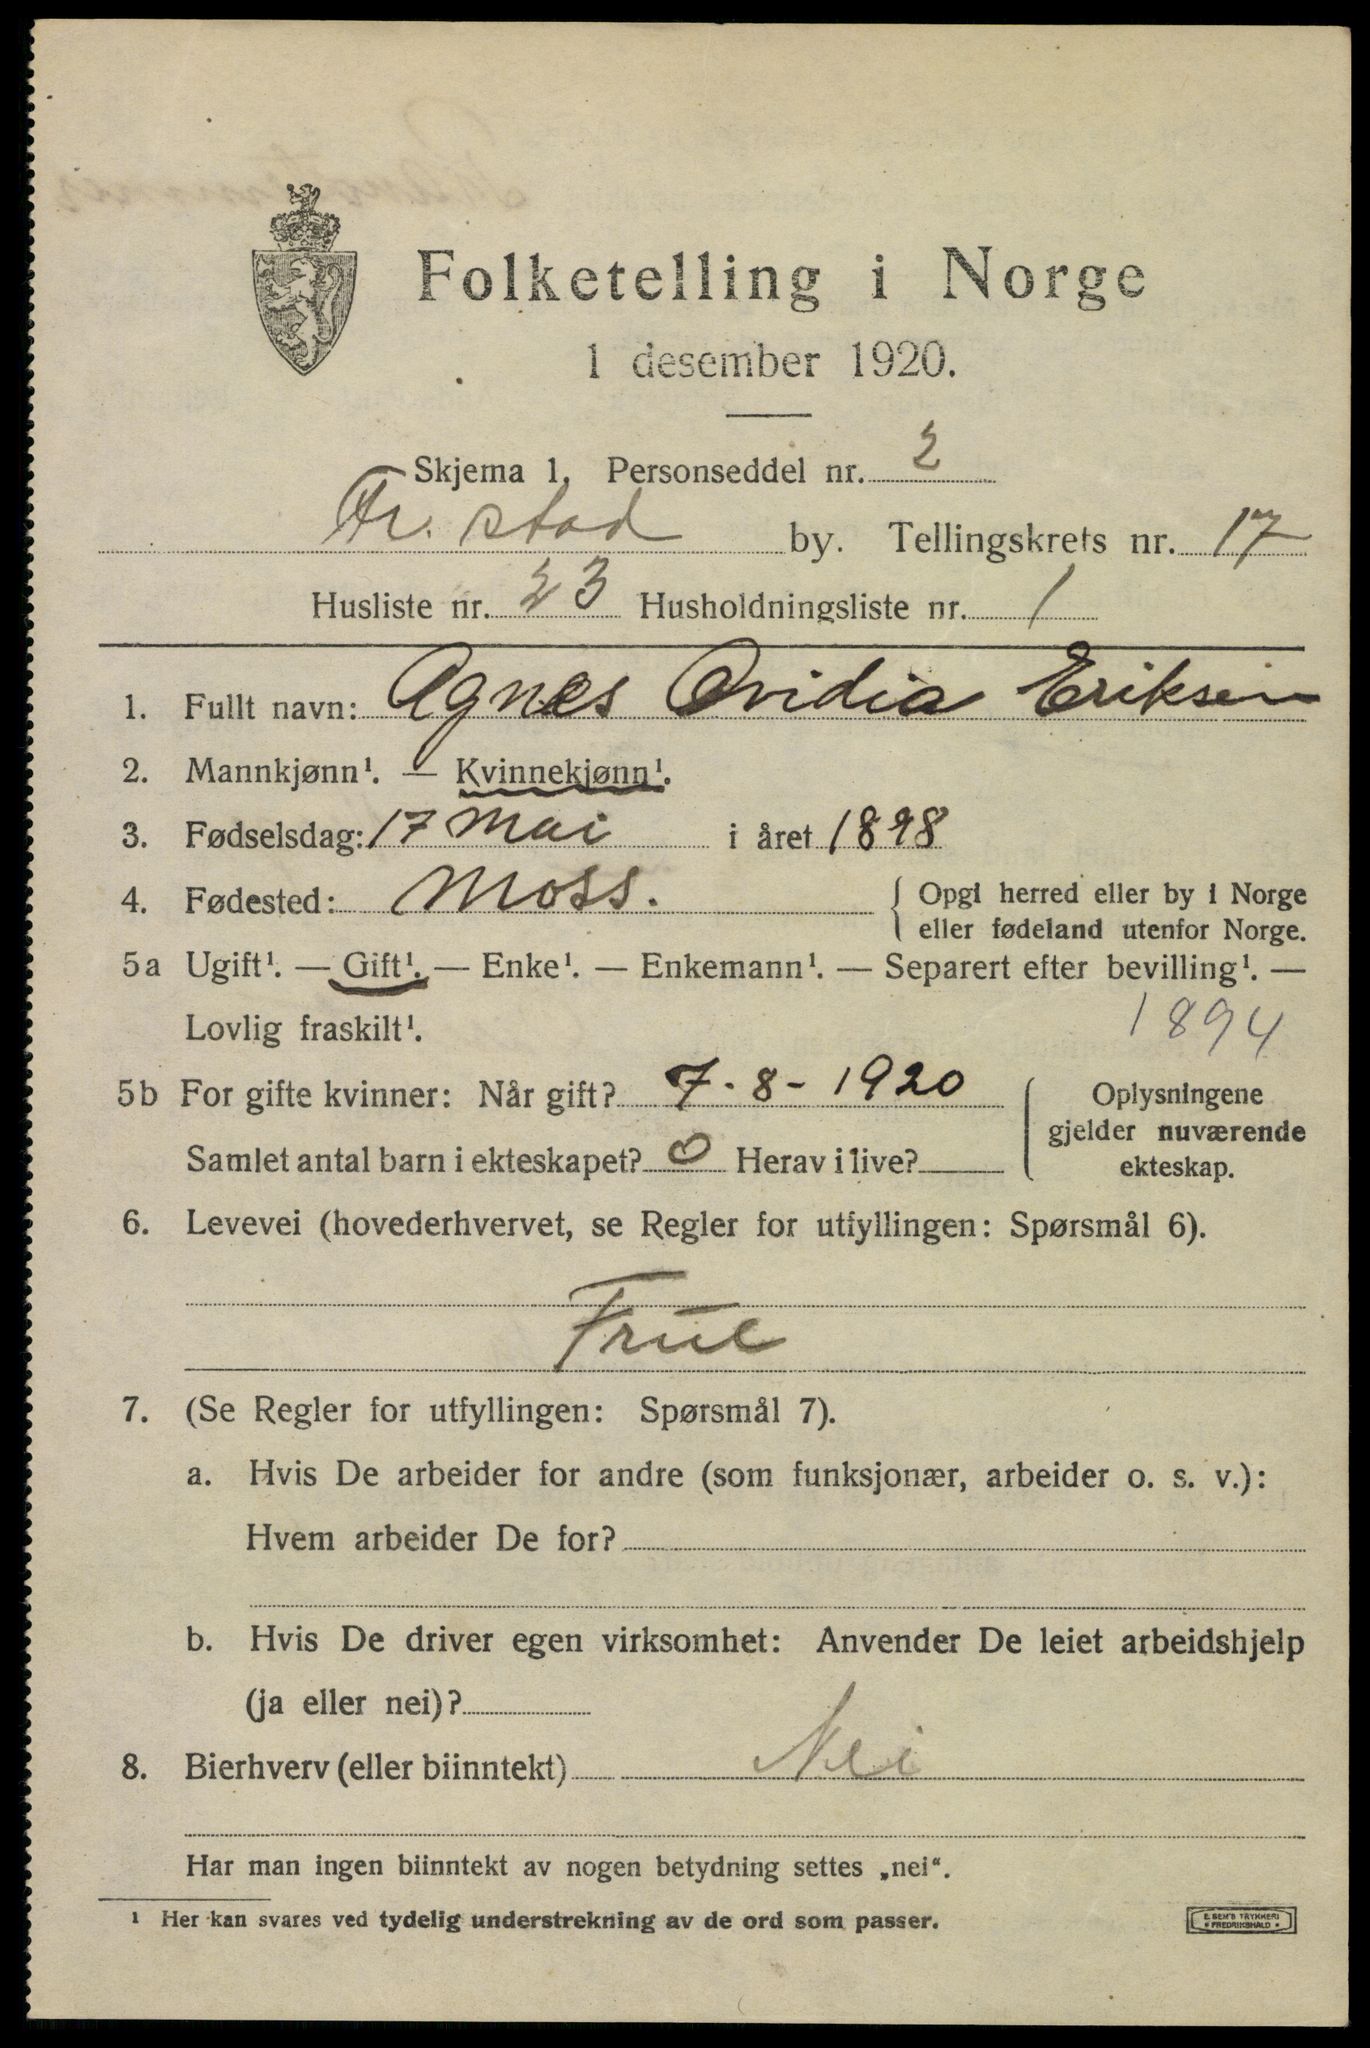 Folketelling i Norge
1 desember 1920.
Skjema 1. Personseddel nr. 2
Fr. stad by. Tellingskrets nr. 17
Husliste nr. 23 Husholdningsliste nr. 1
1. Fullt navn: Agnes Ovidia Eriksen
2. Mannkjønn¹. — Kvinnekjønn¹.
3. Fødselsdag: 17 Mai i året 1898
4. Fødested: Moss. { Opgi herred eller by i Norge
eller fødeland utenfor Norge.
5a Ugift¹. — Gift¹. — Enke¹. — Enkemann¹. — Separert efter bevilling¹. —
Lovlig fraskilt¹. 1894
5b For gifte kvinner: Når gift? 7-8-1920 { Oplysningene
gjelder nuværende
Samlet antal barn i ekteskapet? 0 Herav i live? ekteskap.
6. Levevei (hovederhvervet, se Regler for utfyllingen: Spørsmål 6).
Frue
7. (Se Regler for utfyllingen: Spørsmål 7).
a. Hvis De arbeider for andre (som funksjonær, arbeider o. s. v.):
Hvem arbeider De for?
b. Hvis De driver egen virksomhet: Anvender De leiet arbeidshjelp
(ja eller nei)?
8. Bierhverv (eller biinntekt) Nei
Har man ingen biinntekt av nogen betydning settes „nei“.
¹ Her kan svares ved tydelig understrekning av de ord som passer.
E. SEM'S TRYKKERI
FREDRIKSHALD